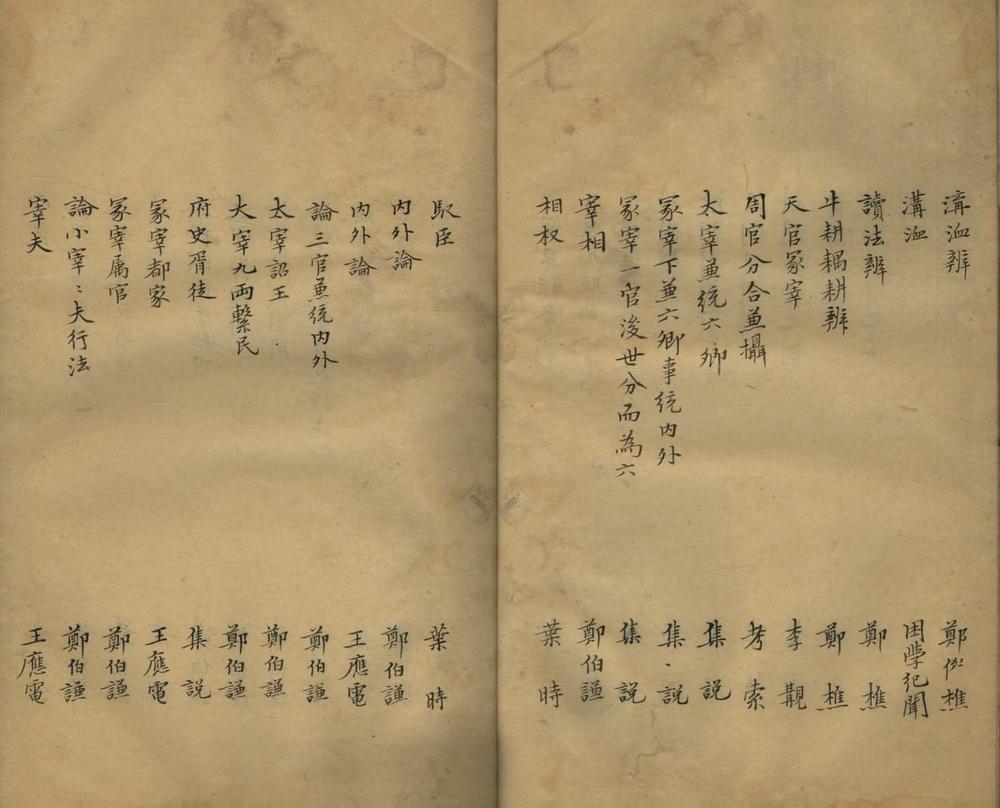 溝洫辨 鄭㑽樵
溝洫 困學紀聞
讀法辨 鄭樵
牛耕耦耕辨 鄭樵
天官冢宰 李覯
周官分合兼攝 考索
太宰兼統六卿 集說
冢宰下兼六卿事統內外 集說
冢宰一官後世分而為六 集說
宰相 鄭伯謙
相权 葉時
馭臣 葉時
內外論 鄭伯謙
內外論 王應電
論三官兼統內外 鄭伯謙
太宰詔王 鄭伯謙
大宰九兩繫民 鄭伯謙
府史胥徒 集說
冢宰都家 王應電
冢宰属官 鄭伯謙
論小宰〻夫行法 鄭伯謙
宰夫 王應電